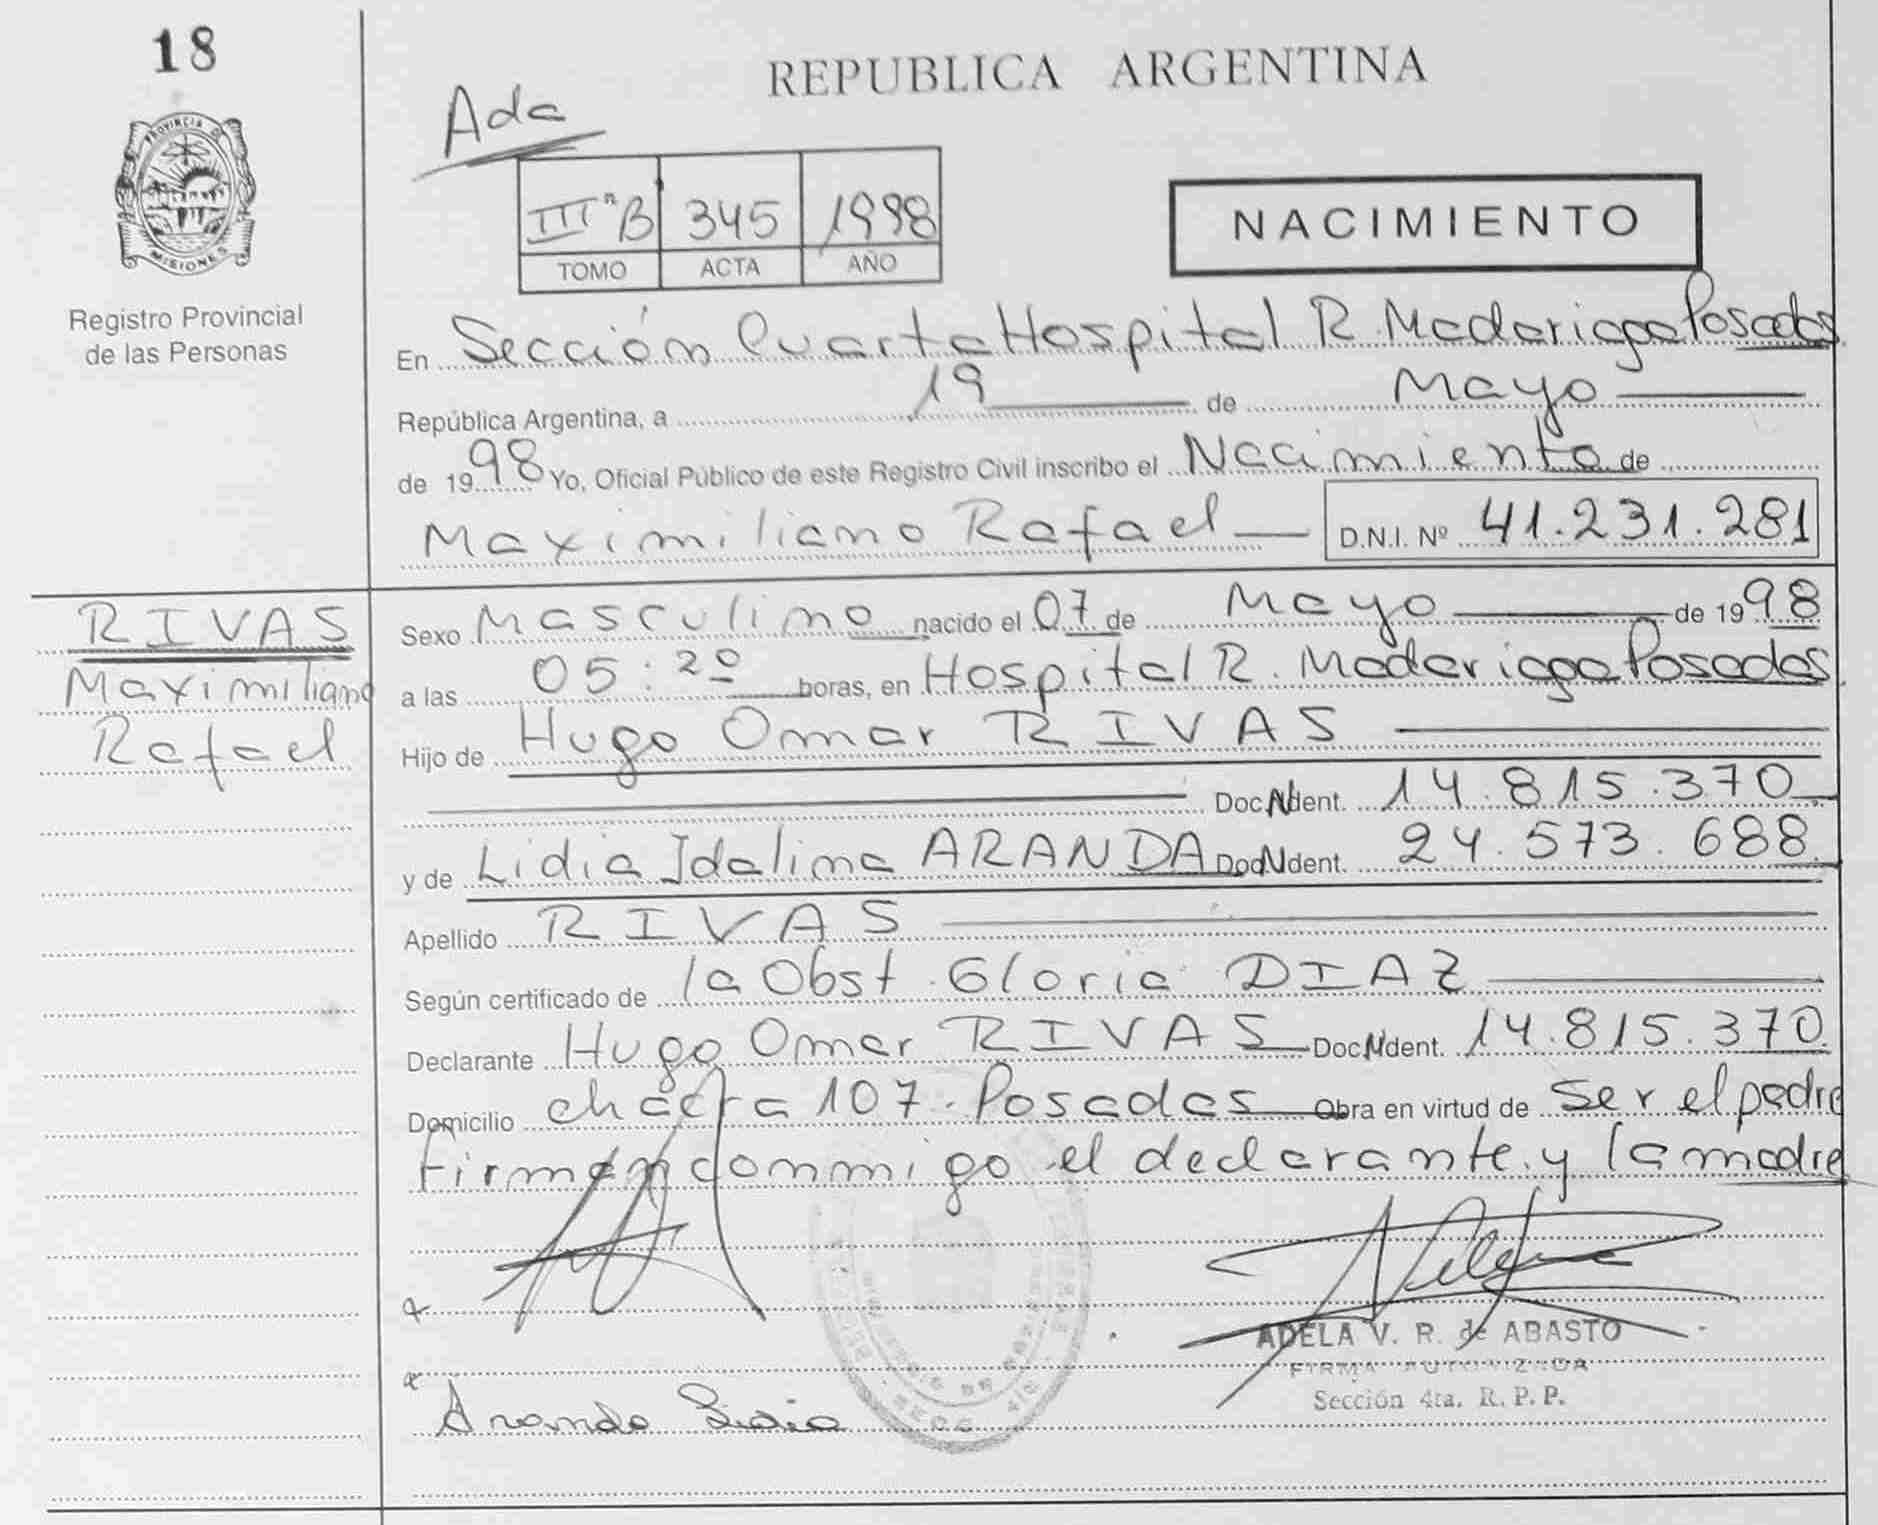 18
REPUBLICA ARGENTINA
Ada
PROVINCIA D
MISIONES
Registro Provincial
de las Personas
III "B 345 1998
TOMO ACTA AÑO
NACIMIENTO
En Sección Cuarta Hospital R. Madariaga Posadas
República Argentina, a 19 de Mayo
de 1998 Yo, Oficial Público de este Registro Civil inscribo el Nacimiento de
Maximiliano Rafael D.N.I. Nº 41.231.281
RIVAS
Maximiliano
Rafael
Sexo Masculino nacido el 07 de Mayo de 1998
a las 05:20 horas, en Hospital R. Madariaga Posadas
Hijo de Hugo Omar RIVAS
Doc N Ident. 14.815.370
y de Lidia Idalina ARANDA Doc N Ident. 24.573.688
Apellido RIVAS
Según certificado de la Obst. Gloria DIAZ
Declarante Hugo Omar RIVAS Doc N Ident. 14.815.370
Domicilio chacra 107. Posadas Obra en virtud de ser el padre
Firman conmigo el declarante y la madre
ADELA V. R. de ABASTO
FIRMA AUTORIZADA
Sección 4ta. R. P. P.
Aranda Lidia